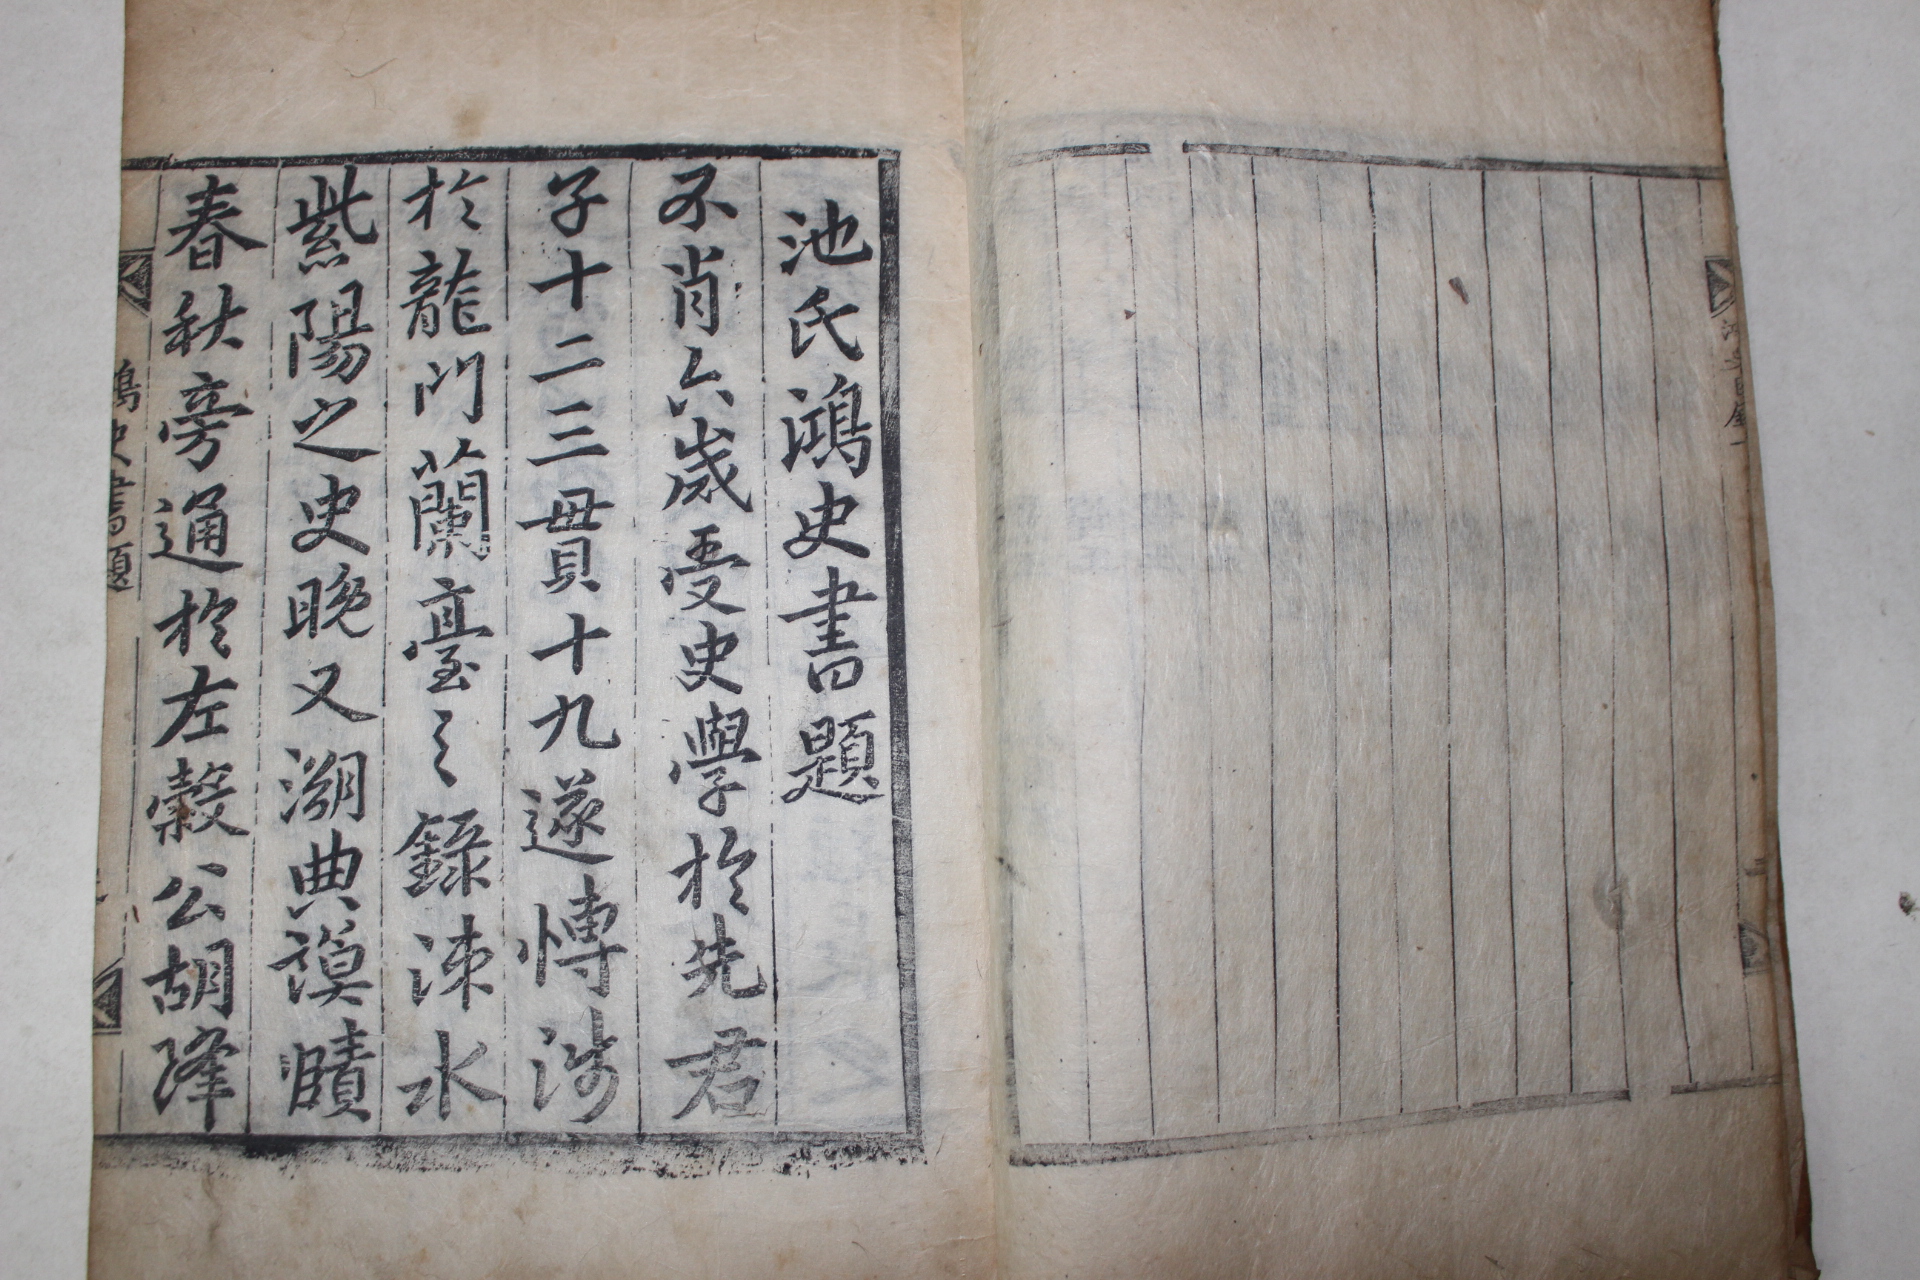 池氏鴻史書題
不肖六歲受史學於先君
子十二三貫十九遂愽涉
於龍門蘭臺之錄涑水
紫陽之史晚又溯典謨賾
春秋旁通於左穀公胡降
鴻史書題